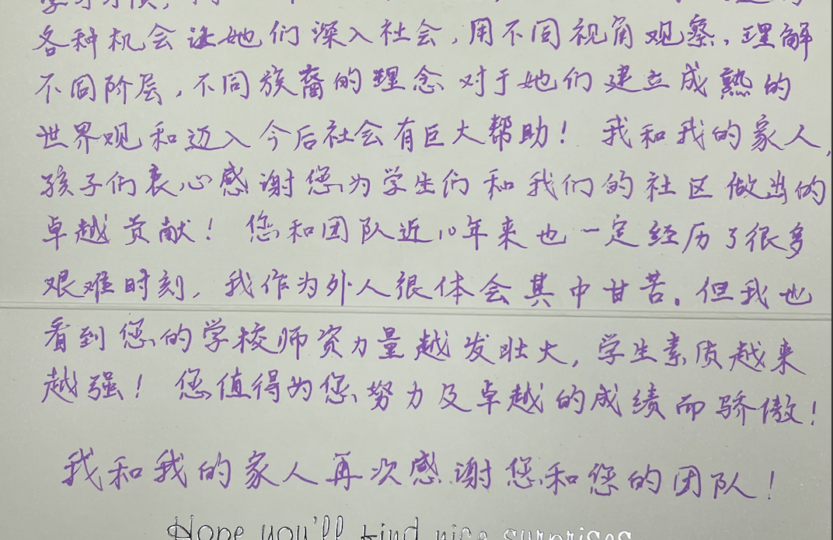 各种机会让她们深入社会，用不同视角观察，理解
不同阶层，不同族裔的理念对于她们建立成熟的
世界观和迈入今后社会有巨大帮助！ 我和我的家人，
孩子们衷心感谢您为学生们和我们的社区做出的
卓越贡献！ 您和团队近10年来也一定经历了很多
艰难时刻，我作为外人很体会其中甘苦。但我也
看到您的学校师资力量越发壮大，学生素质越来
越强！ 您值得为您努力及卓越的成绩而骄傲！
我和我的家人再次感谢您和您的团队！
Hope you'll find nice surprises